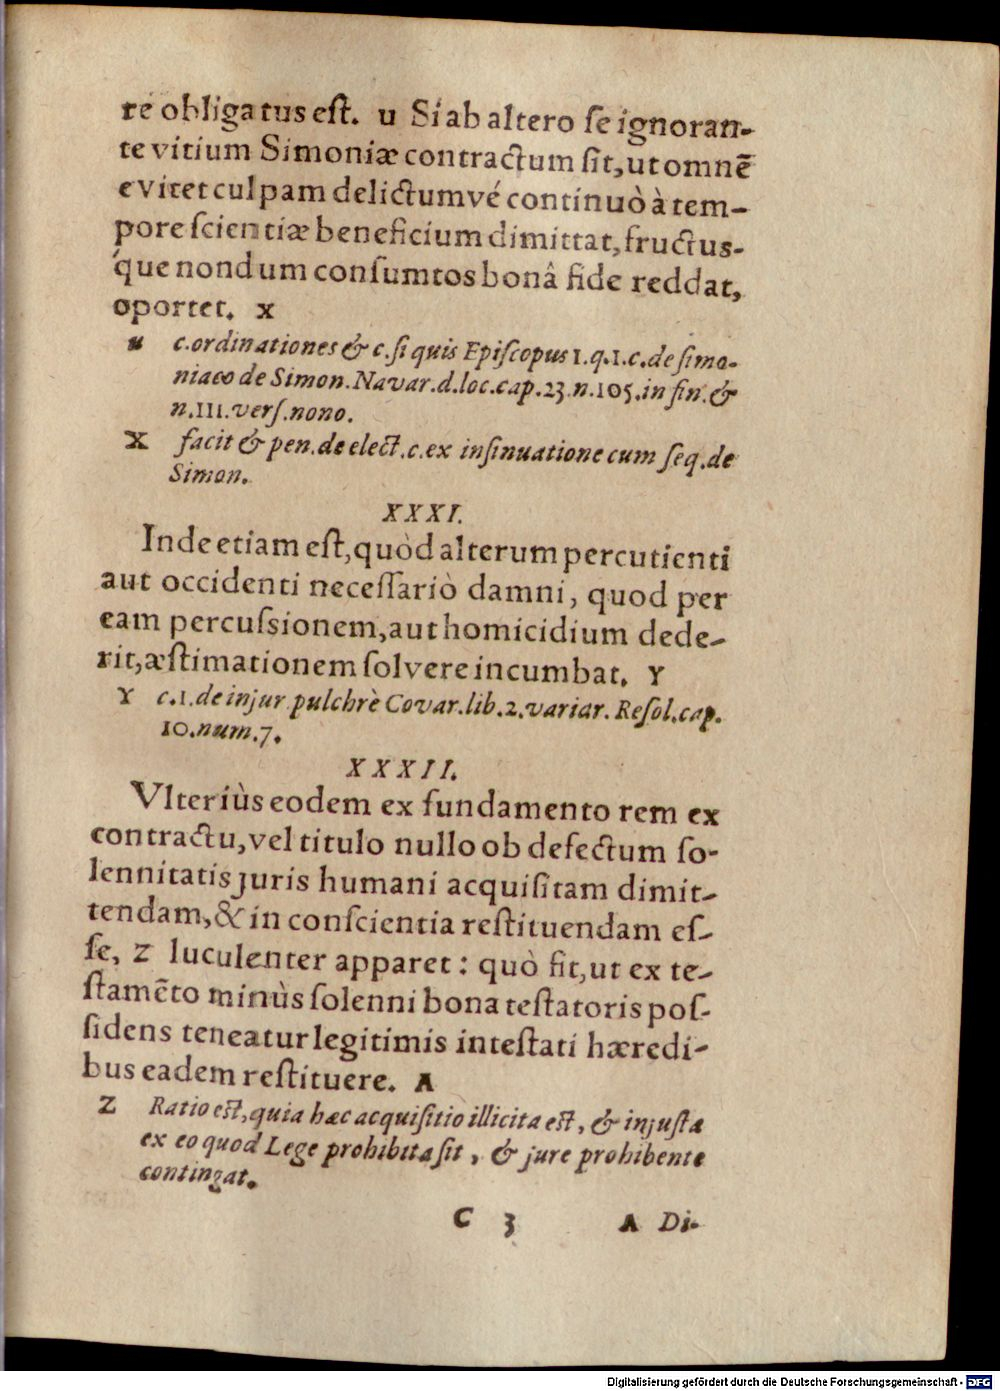 re obligatus est. u Si ab altero se ignoran-
te vitium Simoniæ contractum sit, ut omnē
evitet culpam delictumvé continuò à tem-
pore scientiæ beneficium dimittat, fructus-
que nondum consumtos bonâ fide reddat,
oportet. x
u c. ordinationes & c. si quis Episcopus 1. q. 1. c. de simo-
niaco de Simon. Navar. d. loc. cap. 23. n. 105. in fin. &
n. 111. vers. nono.
X facit & pen. de elect. c. ex insinuatione cum seq. de
Simon.
XXXI.
Inde etiam est, quòd alterum percutienti
aut occidenti necessariò damni, quod per
eam percussionem, aut homicidium dede-
rit, æstimationem solvere incumbat. Y
Y c. 1. de injur. pulchrè Covar. lib. 2. variar. Resol. cap.
10. num. 7.
XXXII.
Vlteriùs eodem ex fundamento rem ex
contractu, vel titulo nullo ob defectum so-
lennitatis juris humani acquisitam dimit-
tendam, & in conscientia restituendam es-
se, Z luculenter apparet: quò fit, ut ex te-
stamēto minùs solenni bona testatoris pos-
sidens teneatur legitimis intestati hæredi-
bus eadem restituere. A
Z Ratio est, quia hæc acquisitio illicita est, & injusta
ex eo quod Lege prohibita sit, & jure prohibente
contingat.
C 3 A Di-
Digitalisierung gefördert durch die Deutsche Forschungsgemeinschaft - DFG